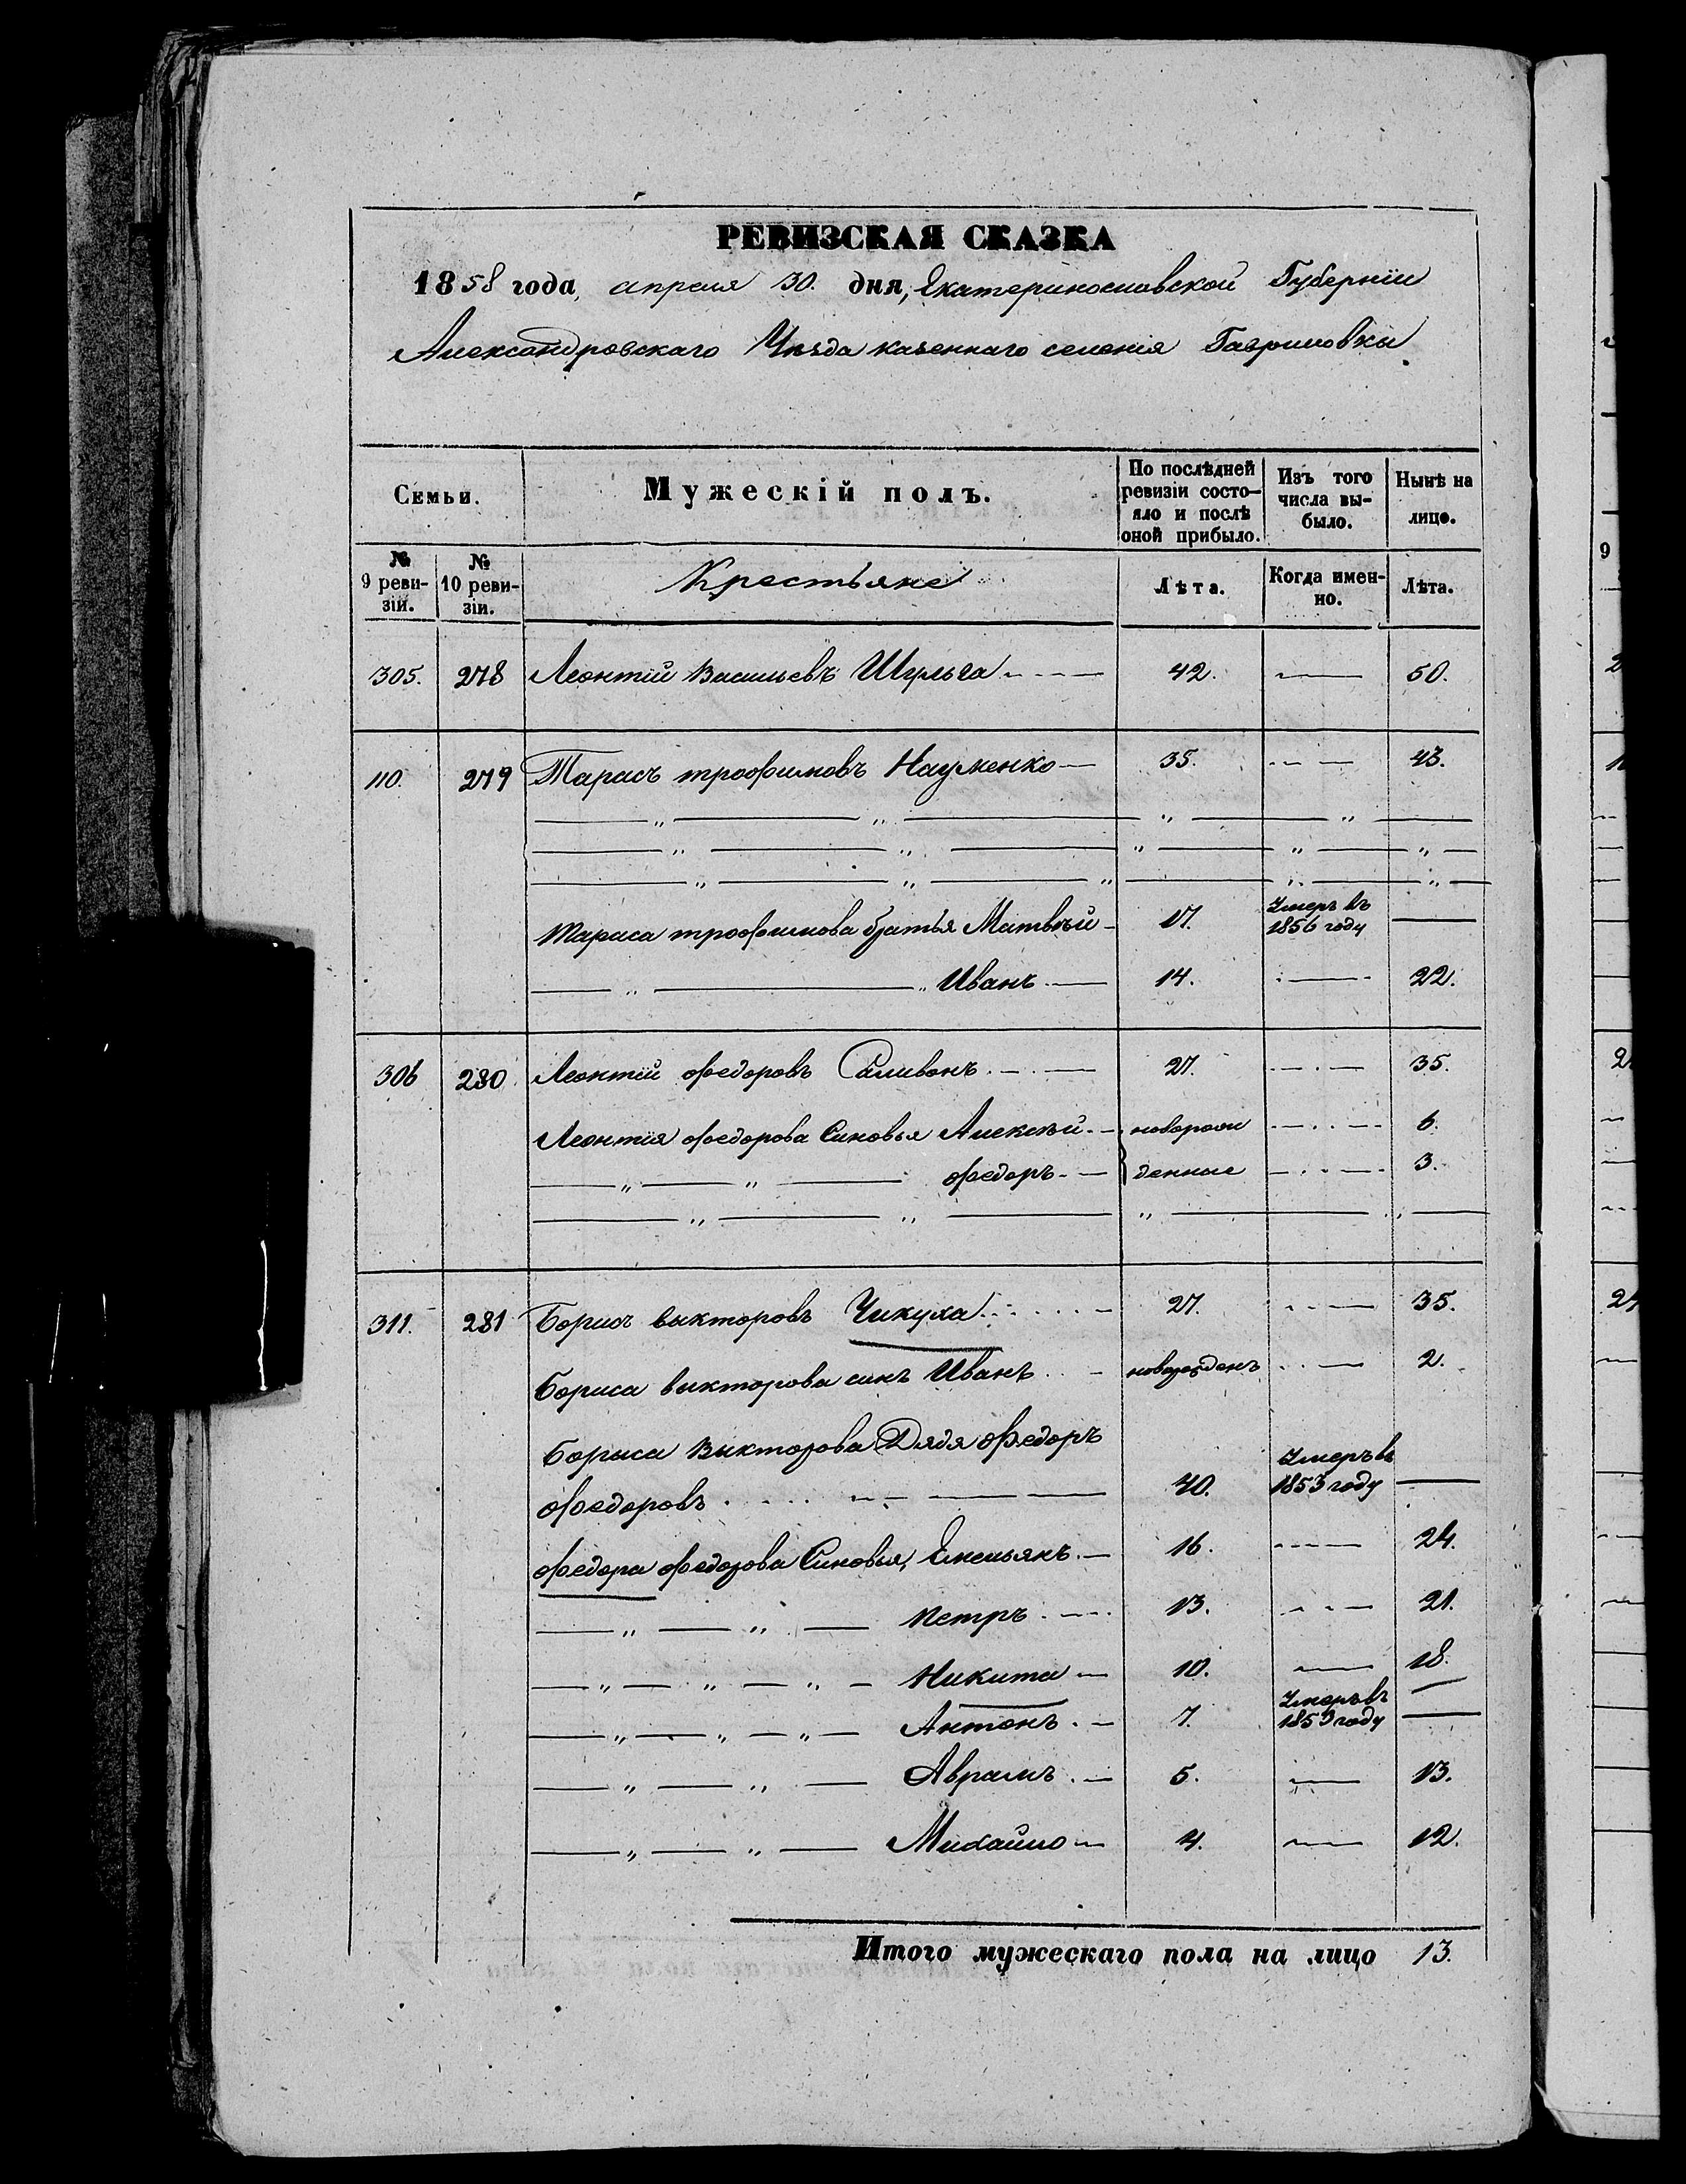 РЕВИЗСКАЯ СКАЗКА
1858 года, апреля 30. дня, Екатеринославской Губернїи
Александровскаго Уѣзда казеннаго селенія Гавриловки
Семьи.
Мужескій полъ.
По послѣдней ревизіи состо-
яло и послѣ
оной прибыло.
Изъ того
числа вы-
было.
Нынѣ на
лицо.
№
9 реви-
зіи.
№
10 реви-
зіи.
Крестьяне
Лѣта.
Когда имен-
но.
Лѣта.
305. 278 Леонтій Васильевъ Шульга 42. — 50.
110. 279 Тарасъ трофимовъ Науменко 35. — 43.
Тараса трофимова братья Матвѣй 17. Умеръ въ 1856 году —
„ „ Иванъ 14. — 22.
306 280 Леонтій федоровъ Саливонъ 27. — 35.
Леонтія федорова Синовья Алексѣй новорож — 6.
„ „ федоръ денные — 3.
311. 281 Борисъ викторовъ Чикуха 27. — 35.
Бориса викторова синъ Иванъ новорожденъ — 2.
Борыса Викторова Дядя федоръ
федоровъ 40. Умеръ въ 1853 году —
федора федорова Синовья, Емельянъ 16. — 24.
„ „ петръ 13. — 21.
„ „ „ Никита 10. — 18.
„ „ „ Антонъ 7. Умеръ въ 1853 году —
„ „ Аврамъ 5. — 13.
„ „ Михайло 4. — 12.
Итого мужескаго пола на лицо 13.